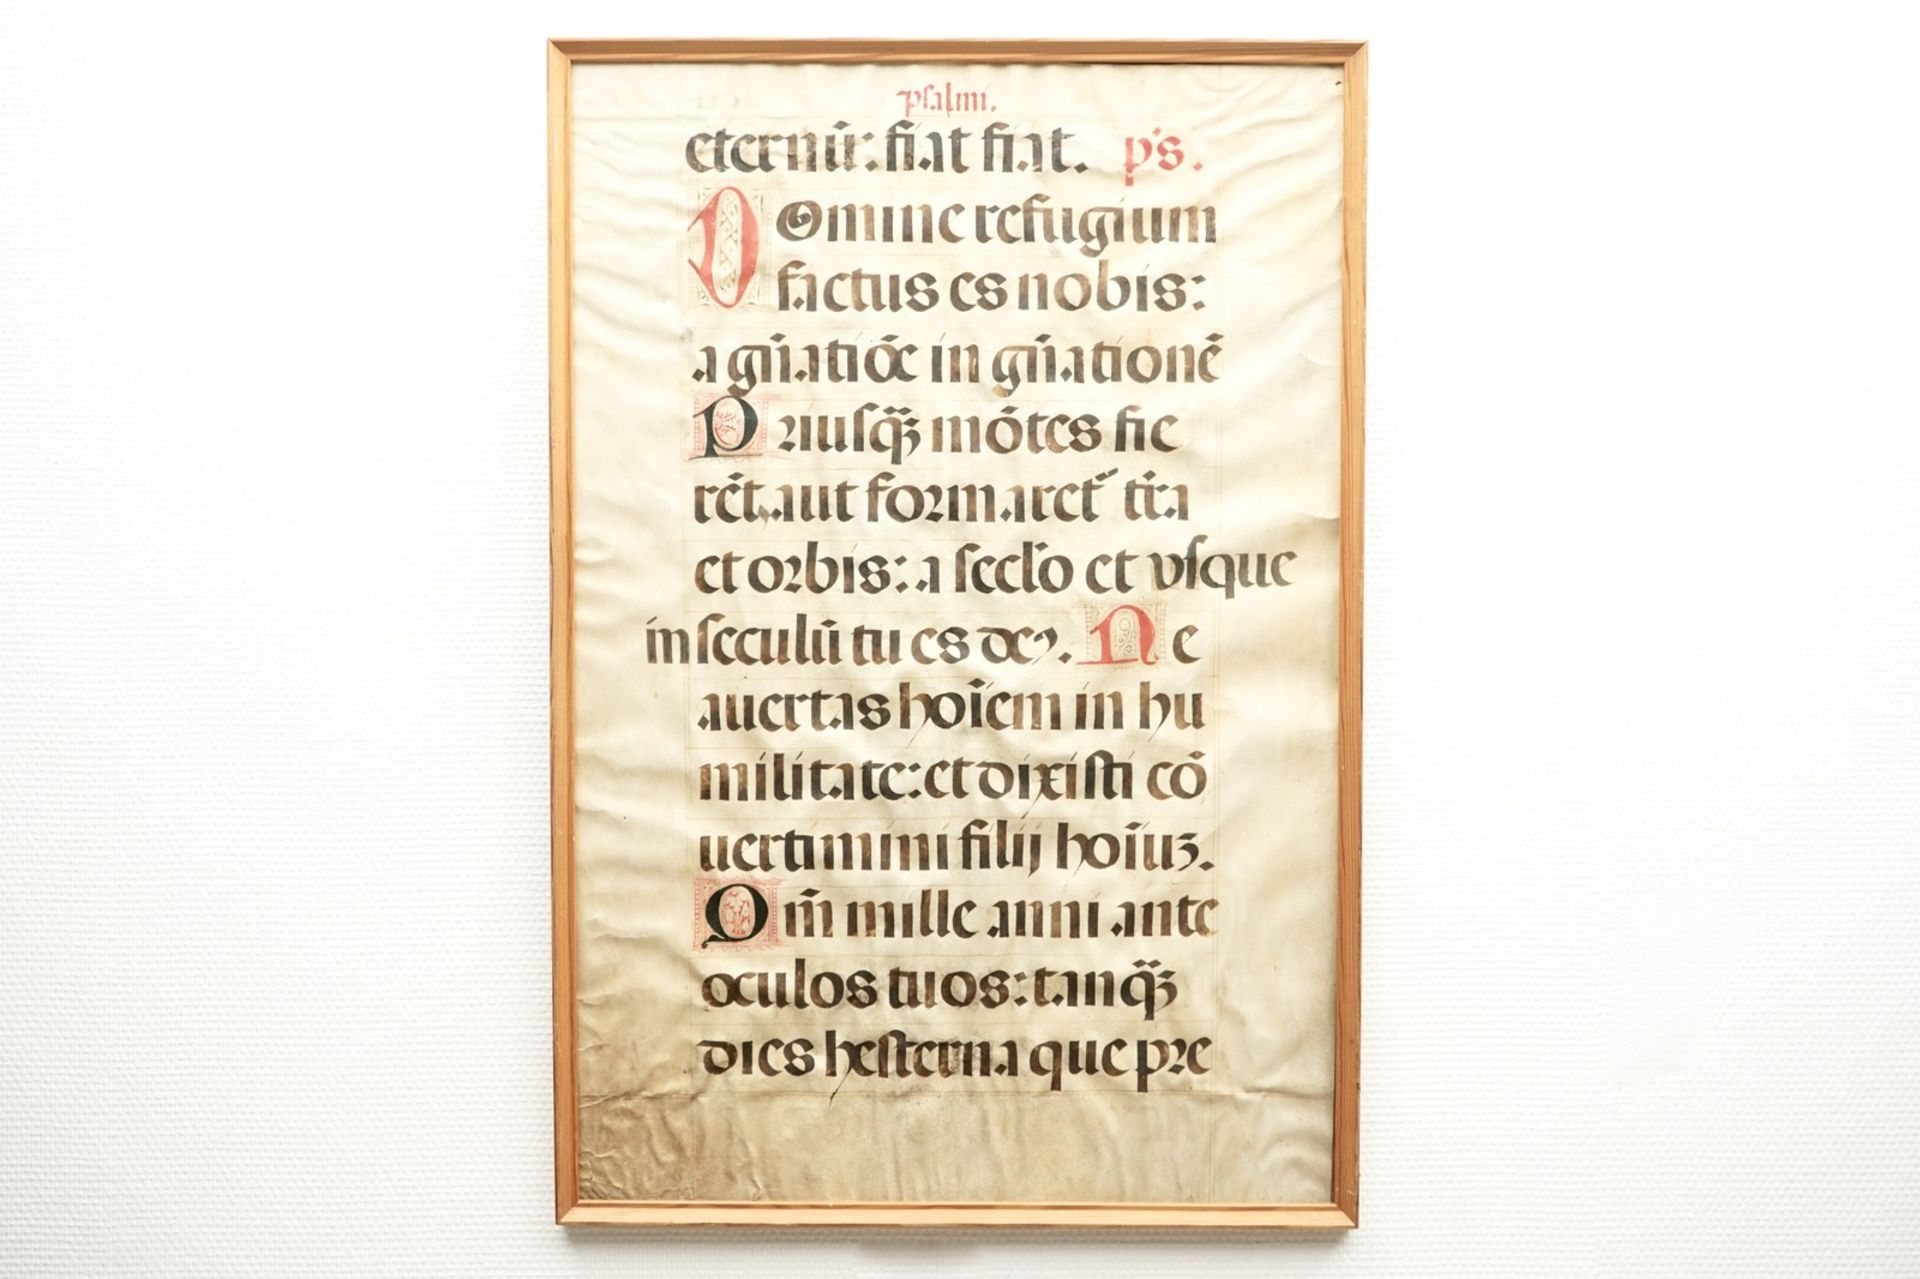 psalmi.
eternū: fiat fiat. ps.
Domine refugium
factus es nobis:
a gn̄atiōe in gn̄ationē
Priusq̄ȝ mōtes fie
rēt, aut formaret̄ tr̄a
et orbis: a secl̄o et vsque
in seculū tu es deꝰ. Ne
auertas hoīem in hu
militate: et dixisti cō
uertimini filij hoīuȝ.
Qm̄ mille anni ante
oculos tuos: tanq̄ȝ
dies hesterna que pre